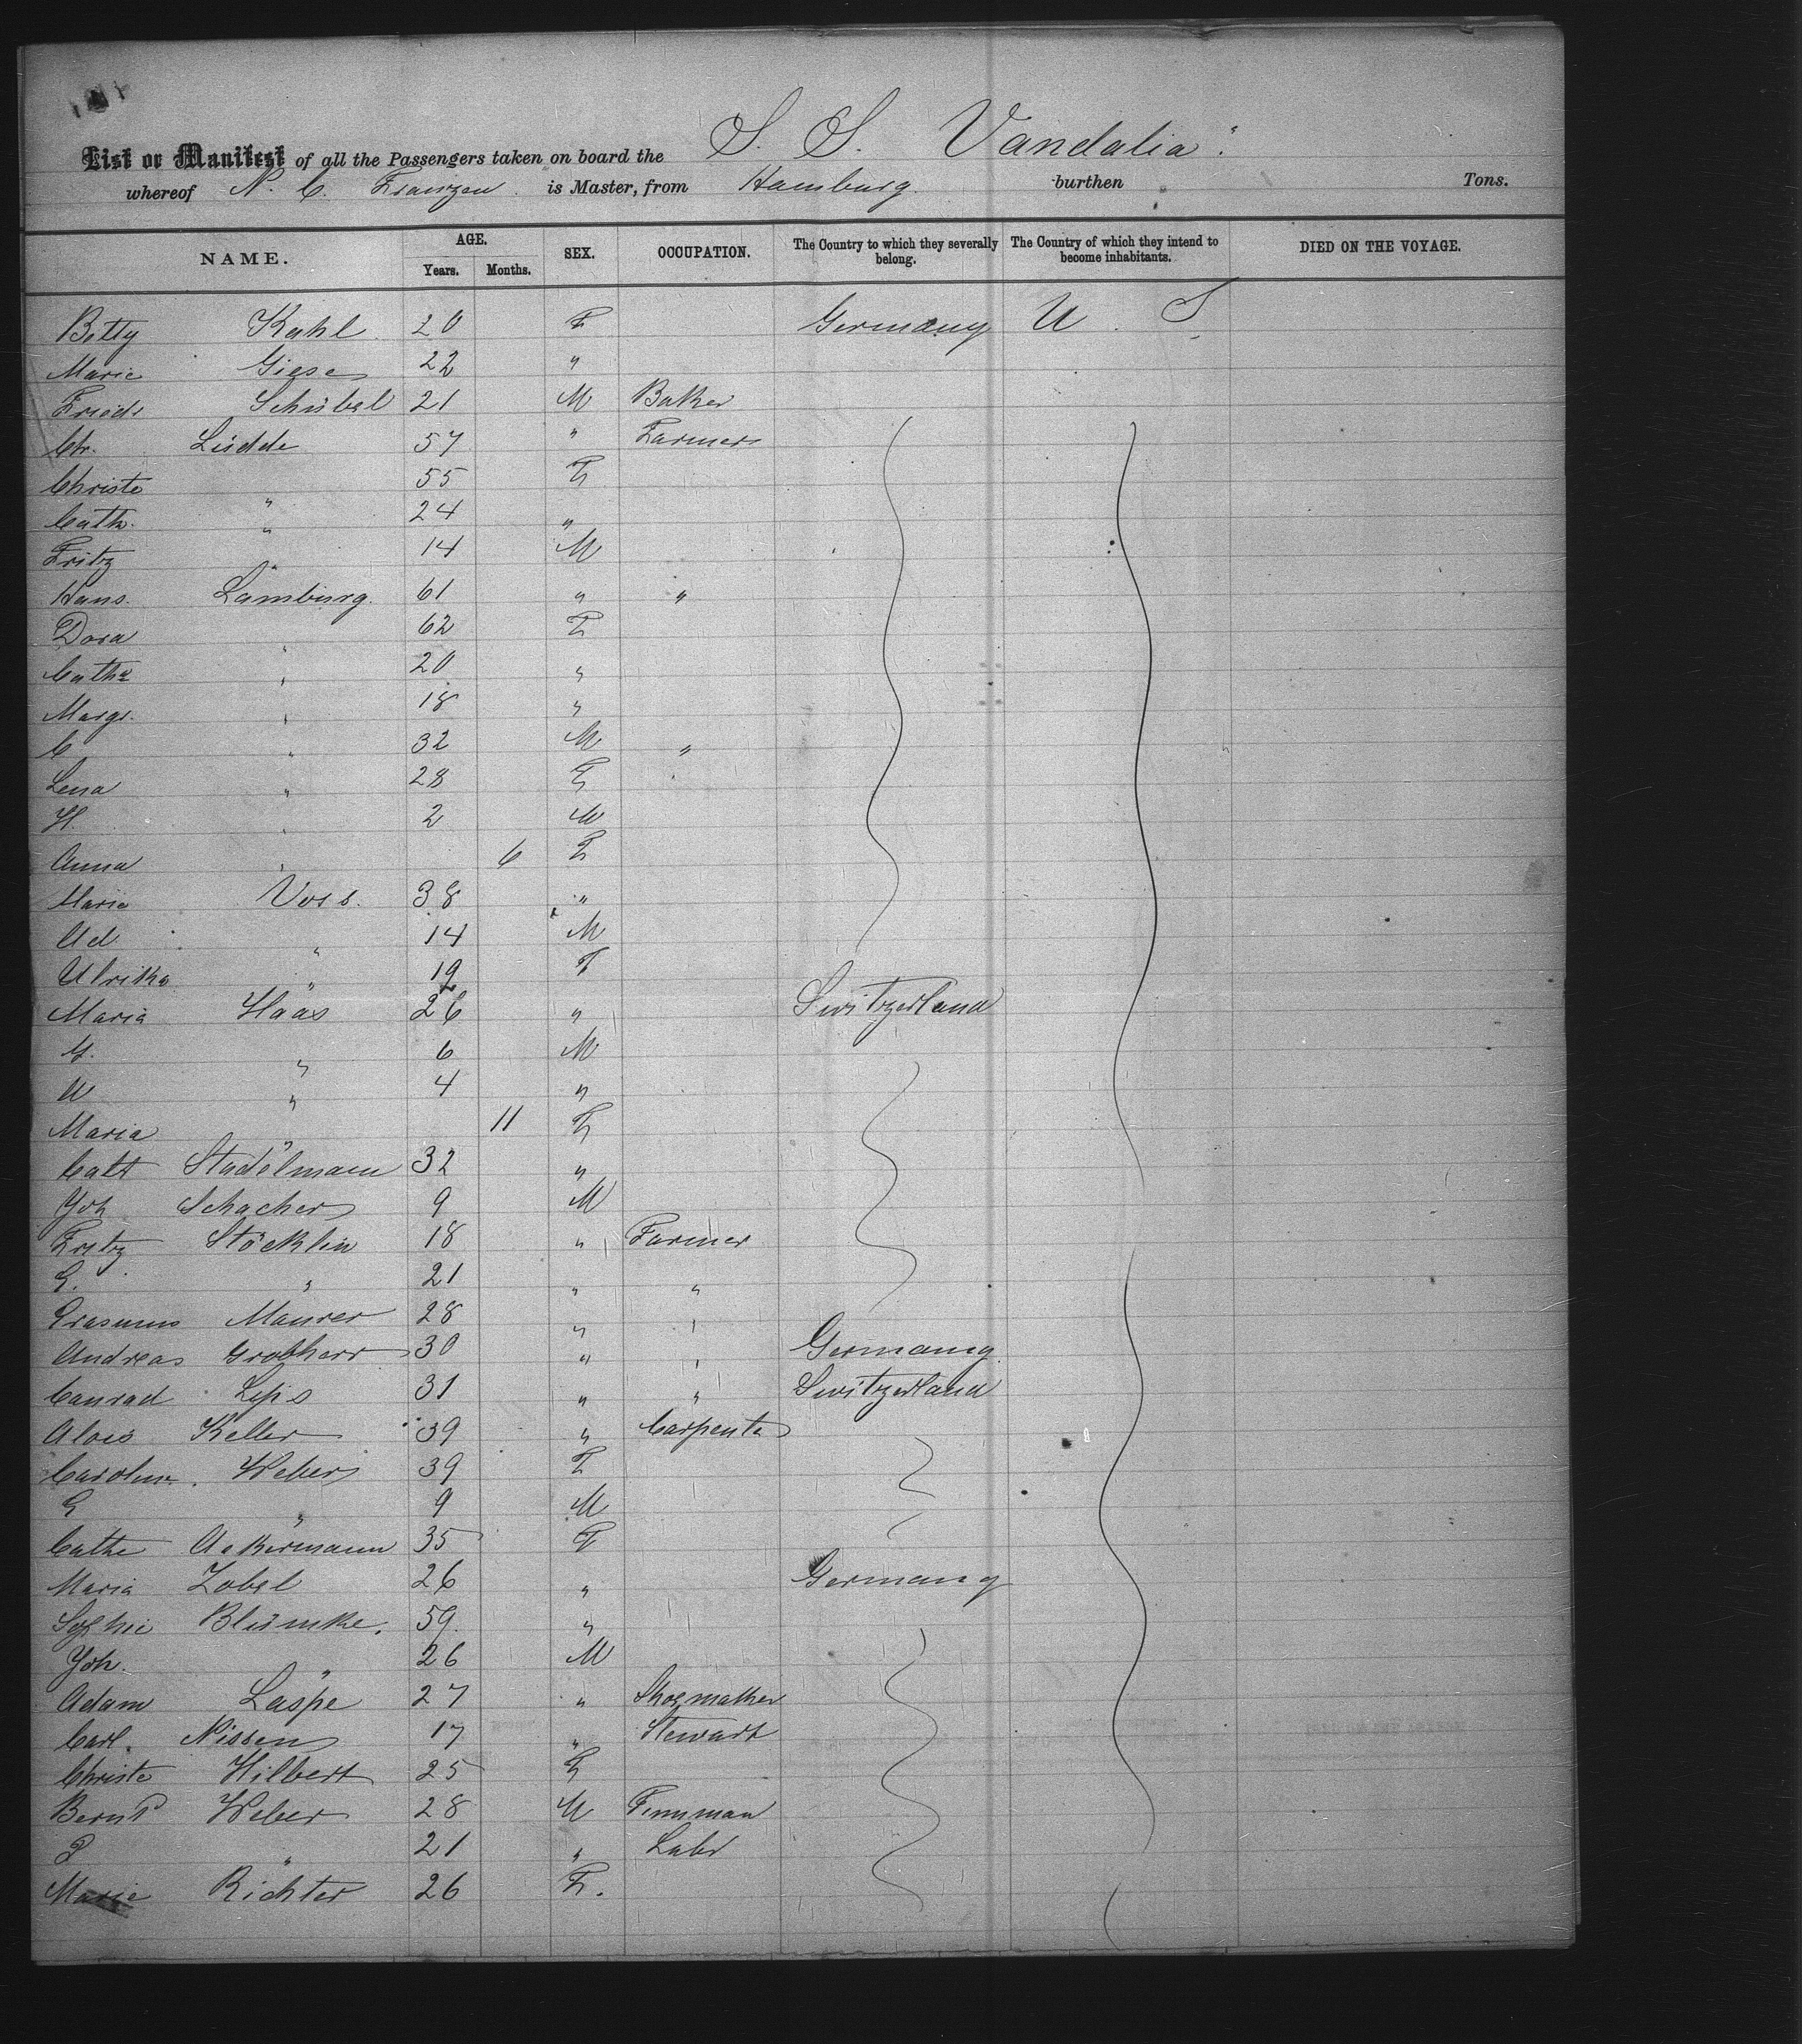 List or Manifest of all the Passengers taken on board the S. S. Vandalia"
whereof N. C. Franzen is Master, from Hamburg burthen Tons.
NAME. AGE. Years. Months. SEX. OCCUPATION. The Country to which they severally belong. The Country of which they intend to become inhabitants. DIED ON THE VOYAGE.
Betty Kahl 20 F Germany U. S.
Marie Giese 22 "
Friedr Schubel 21 M Baker
Chr. Lüdde 57 " Farmer
Christe " 55 F
Cath. " 24 "
Fritz " 14 M
Hans. Lamburg. 61 " "
Dora " 62 F
Cathe " 20 "
Margr. " 18 "
C " 32 M "
Lena " 28 F
H. " 2 M
Anna " 6 F
Marie Voss. 38 "
Ad " 14 M
Ulrike " 19 F
Maria Haas 26 " Switzerland
" 6 M
U " 4 "
Maria " 11 F
Cath Stadelmann 32 "
Joh Schacher 9 M
Fritz Stöcklin 18 " Farmer
G. " 21 " "
Erasmus Maurer 28 " "
Andreas Grobherr 30 " " Germany
Conrad Lips 31 " " Switzerland
Alois Keller 39 " Carpente
Caroline. Weber 39 F
G " 9 M
Cathe Ackermann 35 F
Maria Zobel 26 " Germany
Sophie Blümke. 59. "
Joh. " 26 M
Adam Laspe 27 " Shoemaker
Carl. Nissen 17 " Stewart
Christe Hilbert 25 F
Bernd Weber 28 M
P " 21 " Labr
Marie Richter 26 F.